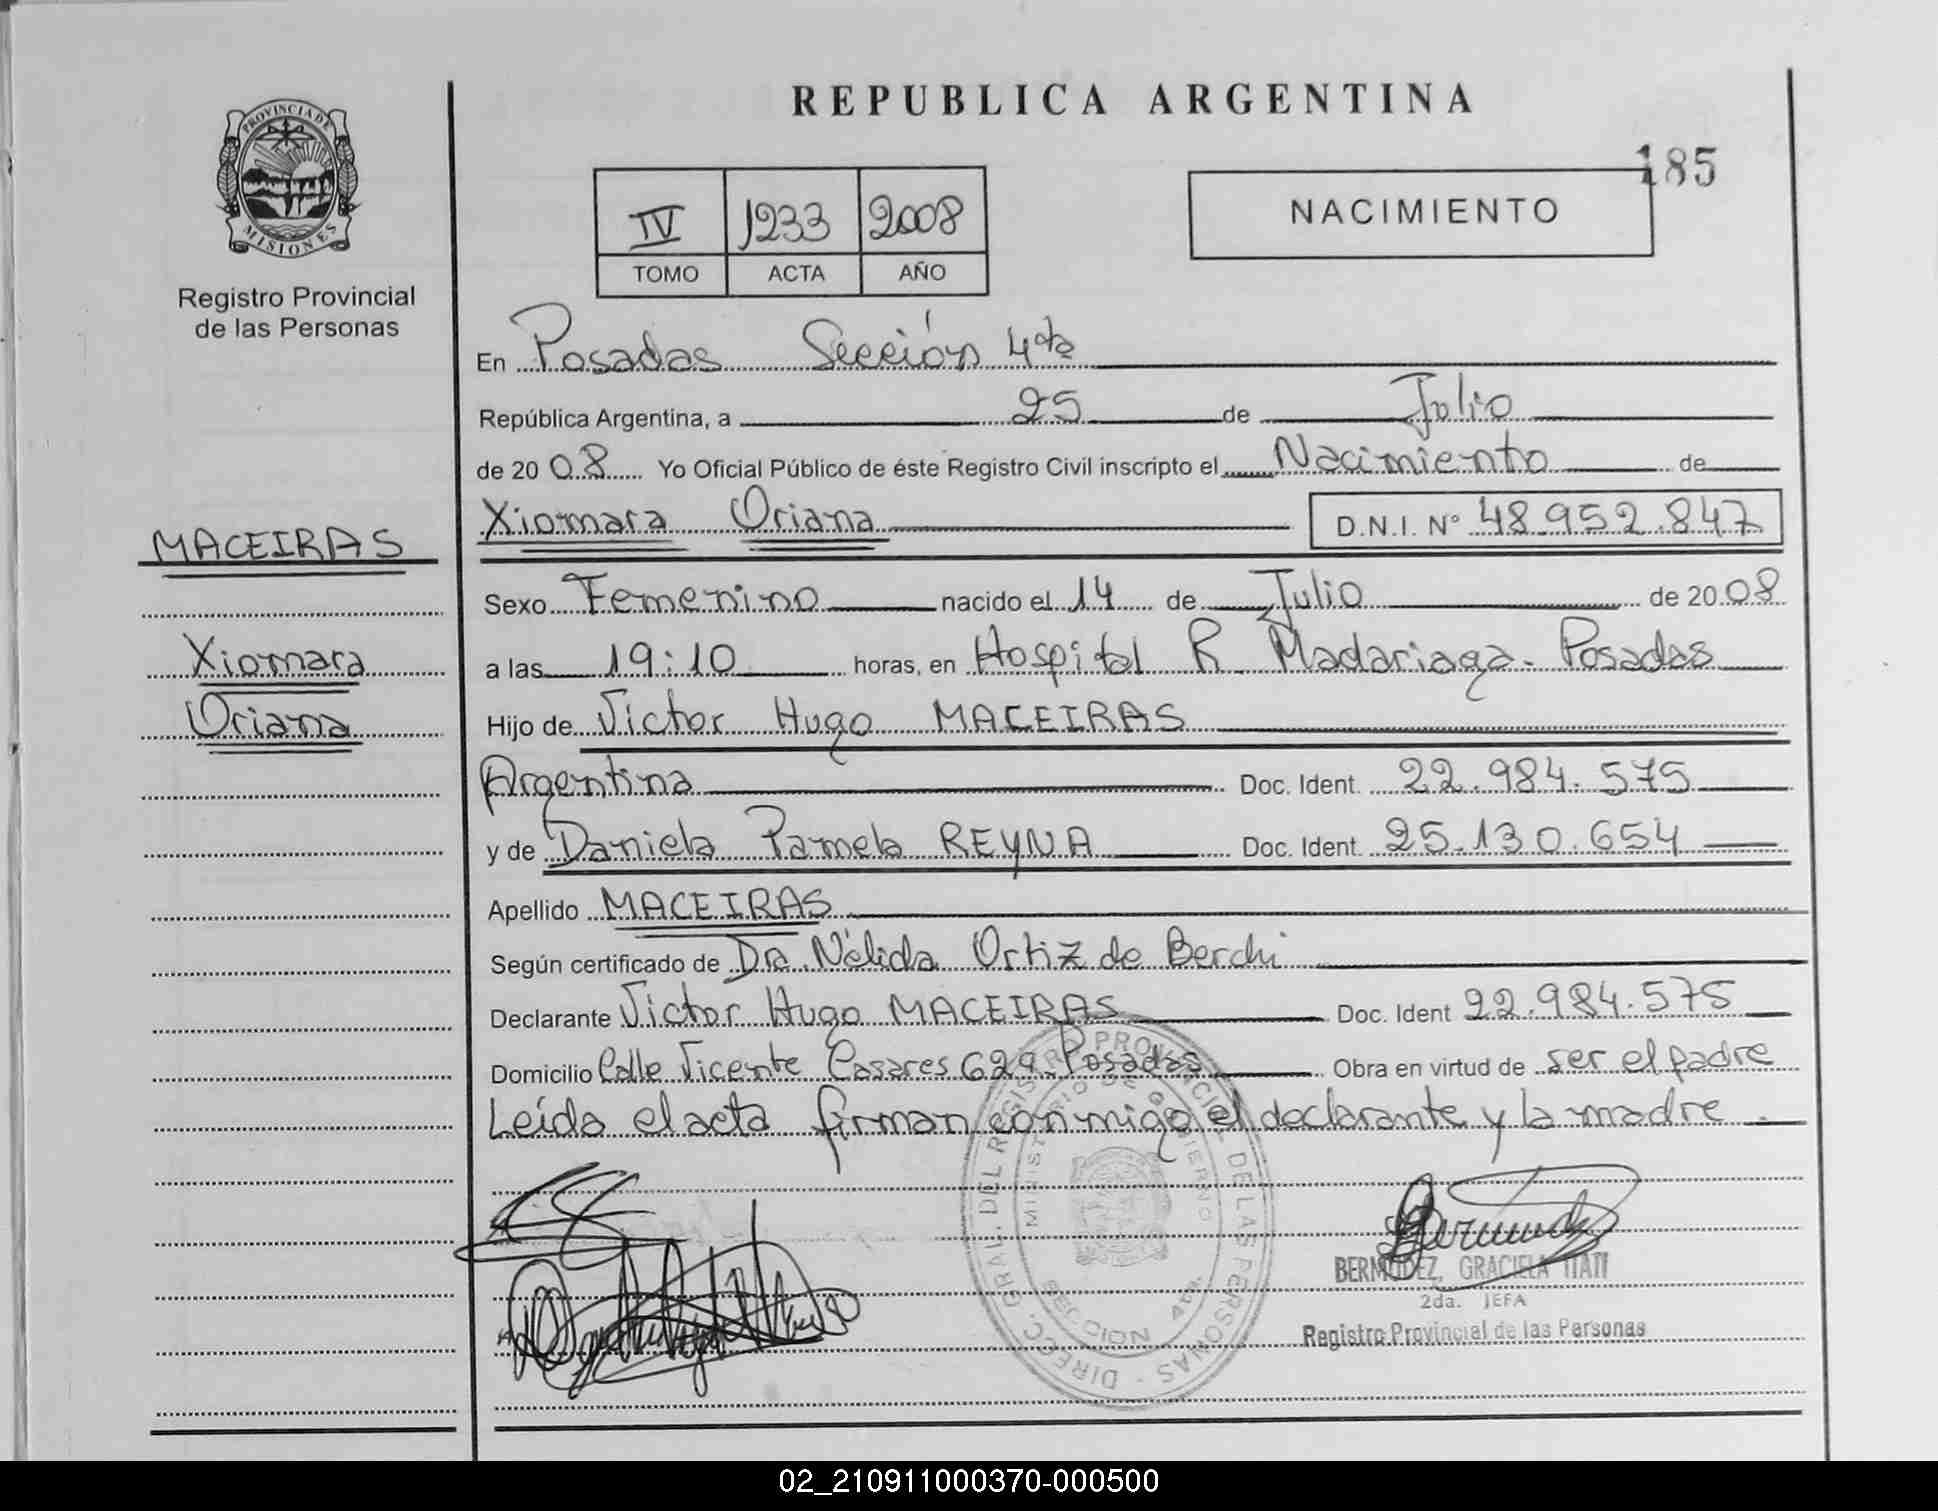 REPUBLICA ARGENTINA
185
PROVINCIA DE MISIONES
Registro Provincial
de las Personas
IV 1233 2008
TOMO ACTA AÑO
NACIMIENTO
En Posadas Sección 4ta
República Argentina, a 25 de Julio
de 2008 Yo Oficial Público de éste Registro Civil inscripto el Nacimiento de
Xiomara Oriana D.N.I. N° 48.952.847
MACEIRAS
Xiomara
Oriana
Sexo Femenino nacido el 14 de Julio de 2008
a las 19:10 horas, en Hospital R. Madariaga. Posadas
Hijo de Victor Hugo MACEIRAS
Argentina Doc. Ident. 22.984.575
y de Daniela Pamela REYNA Doc. Ident. 25.130.654
Apellido MACEIRAS
Según certificado de Dra. Nélida Ortiz de Berchi
Declarante Victor Hugo MACEIRAS Doc. Ident 22.984.575
Domicilio Calle Vicente Casares 629 Posadas Obra en virtud de ser el padre
Leída el acta firman conmigo el declarante y la madre.
DIRECC. GRAL. DEL REGISTRO PROVINCIAL DE LAS PERSONAS
MINISTERIO DE GOBIERNO
SECCION 4ta.
BERMUDEZ, GRACIELA ITATI
2da. JEFA
Registro Provincial de las Personas
02_210911000370-000500